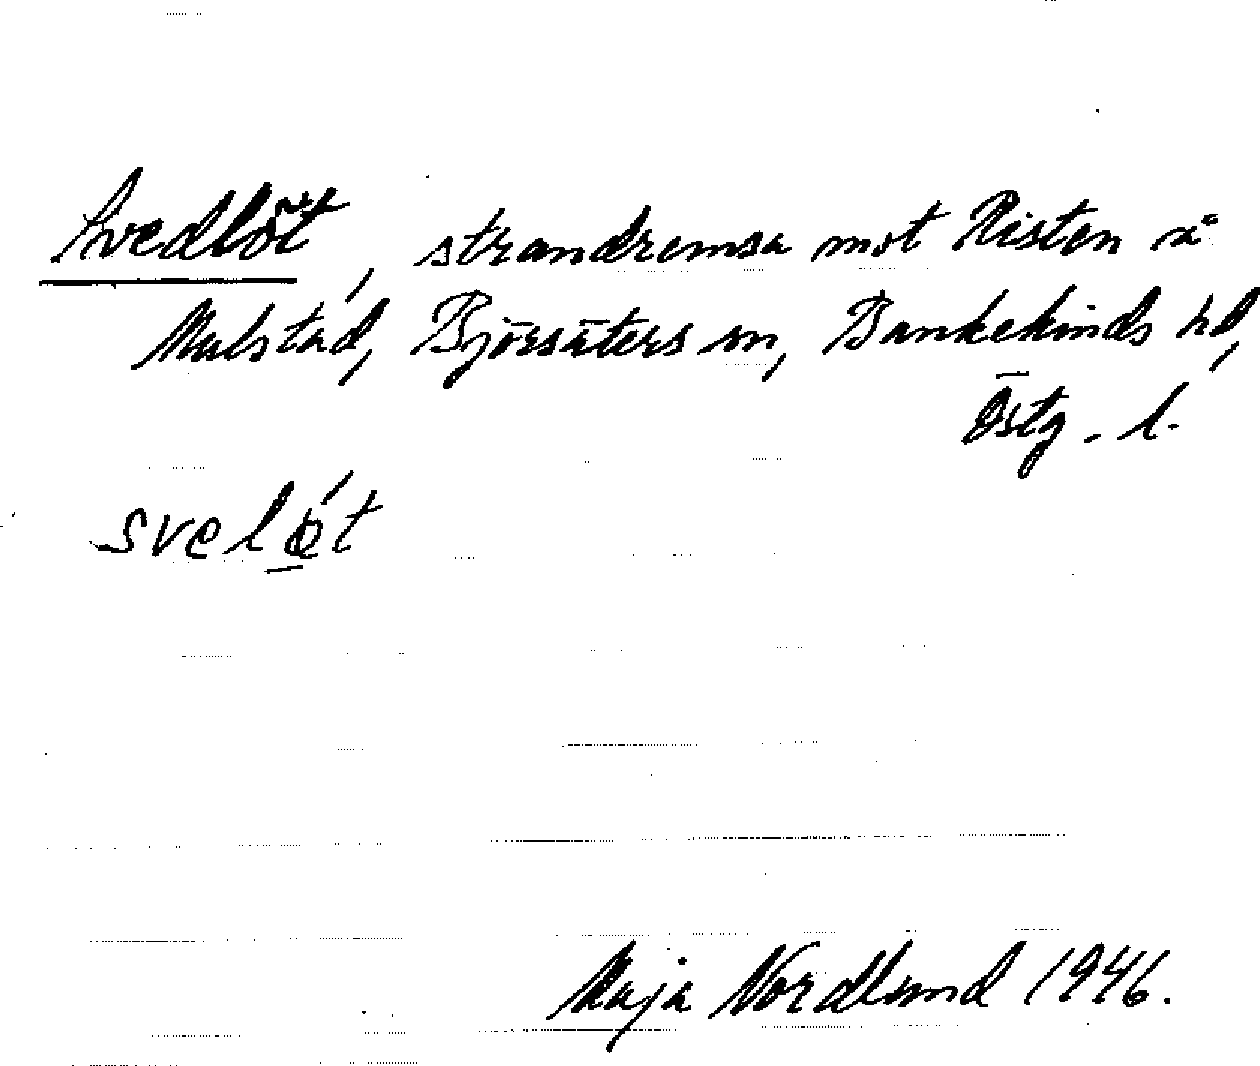 Svedlöt, strandremsa mot Risten å
Mulstad, Björsäters sn, Bankekinds hd,
Östg. l.
svelǿ̱t
Maja Nordlund 1946.